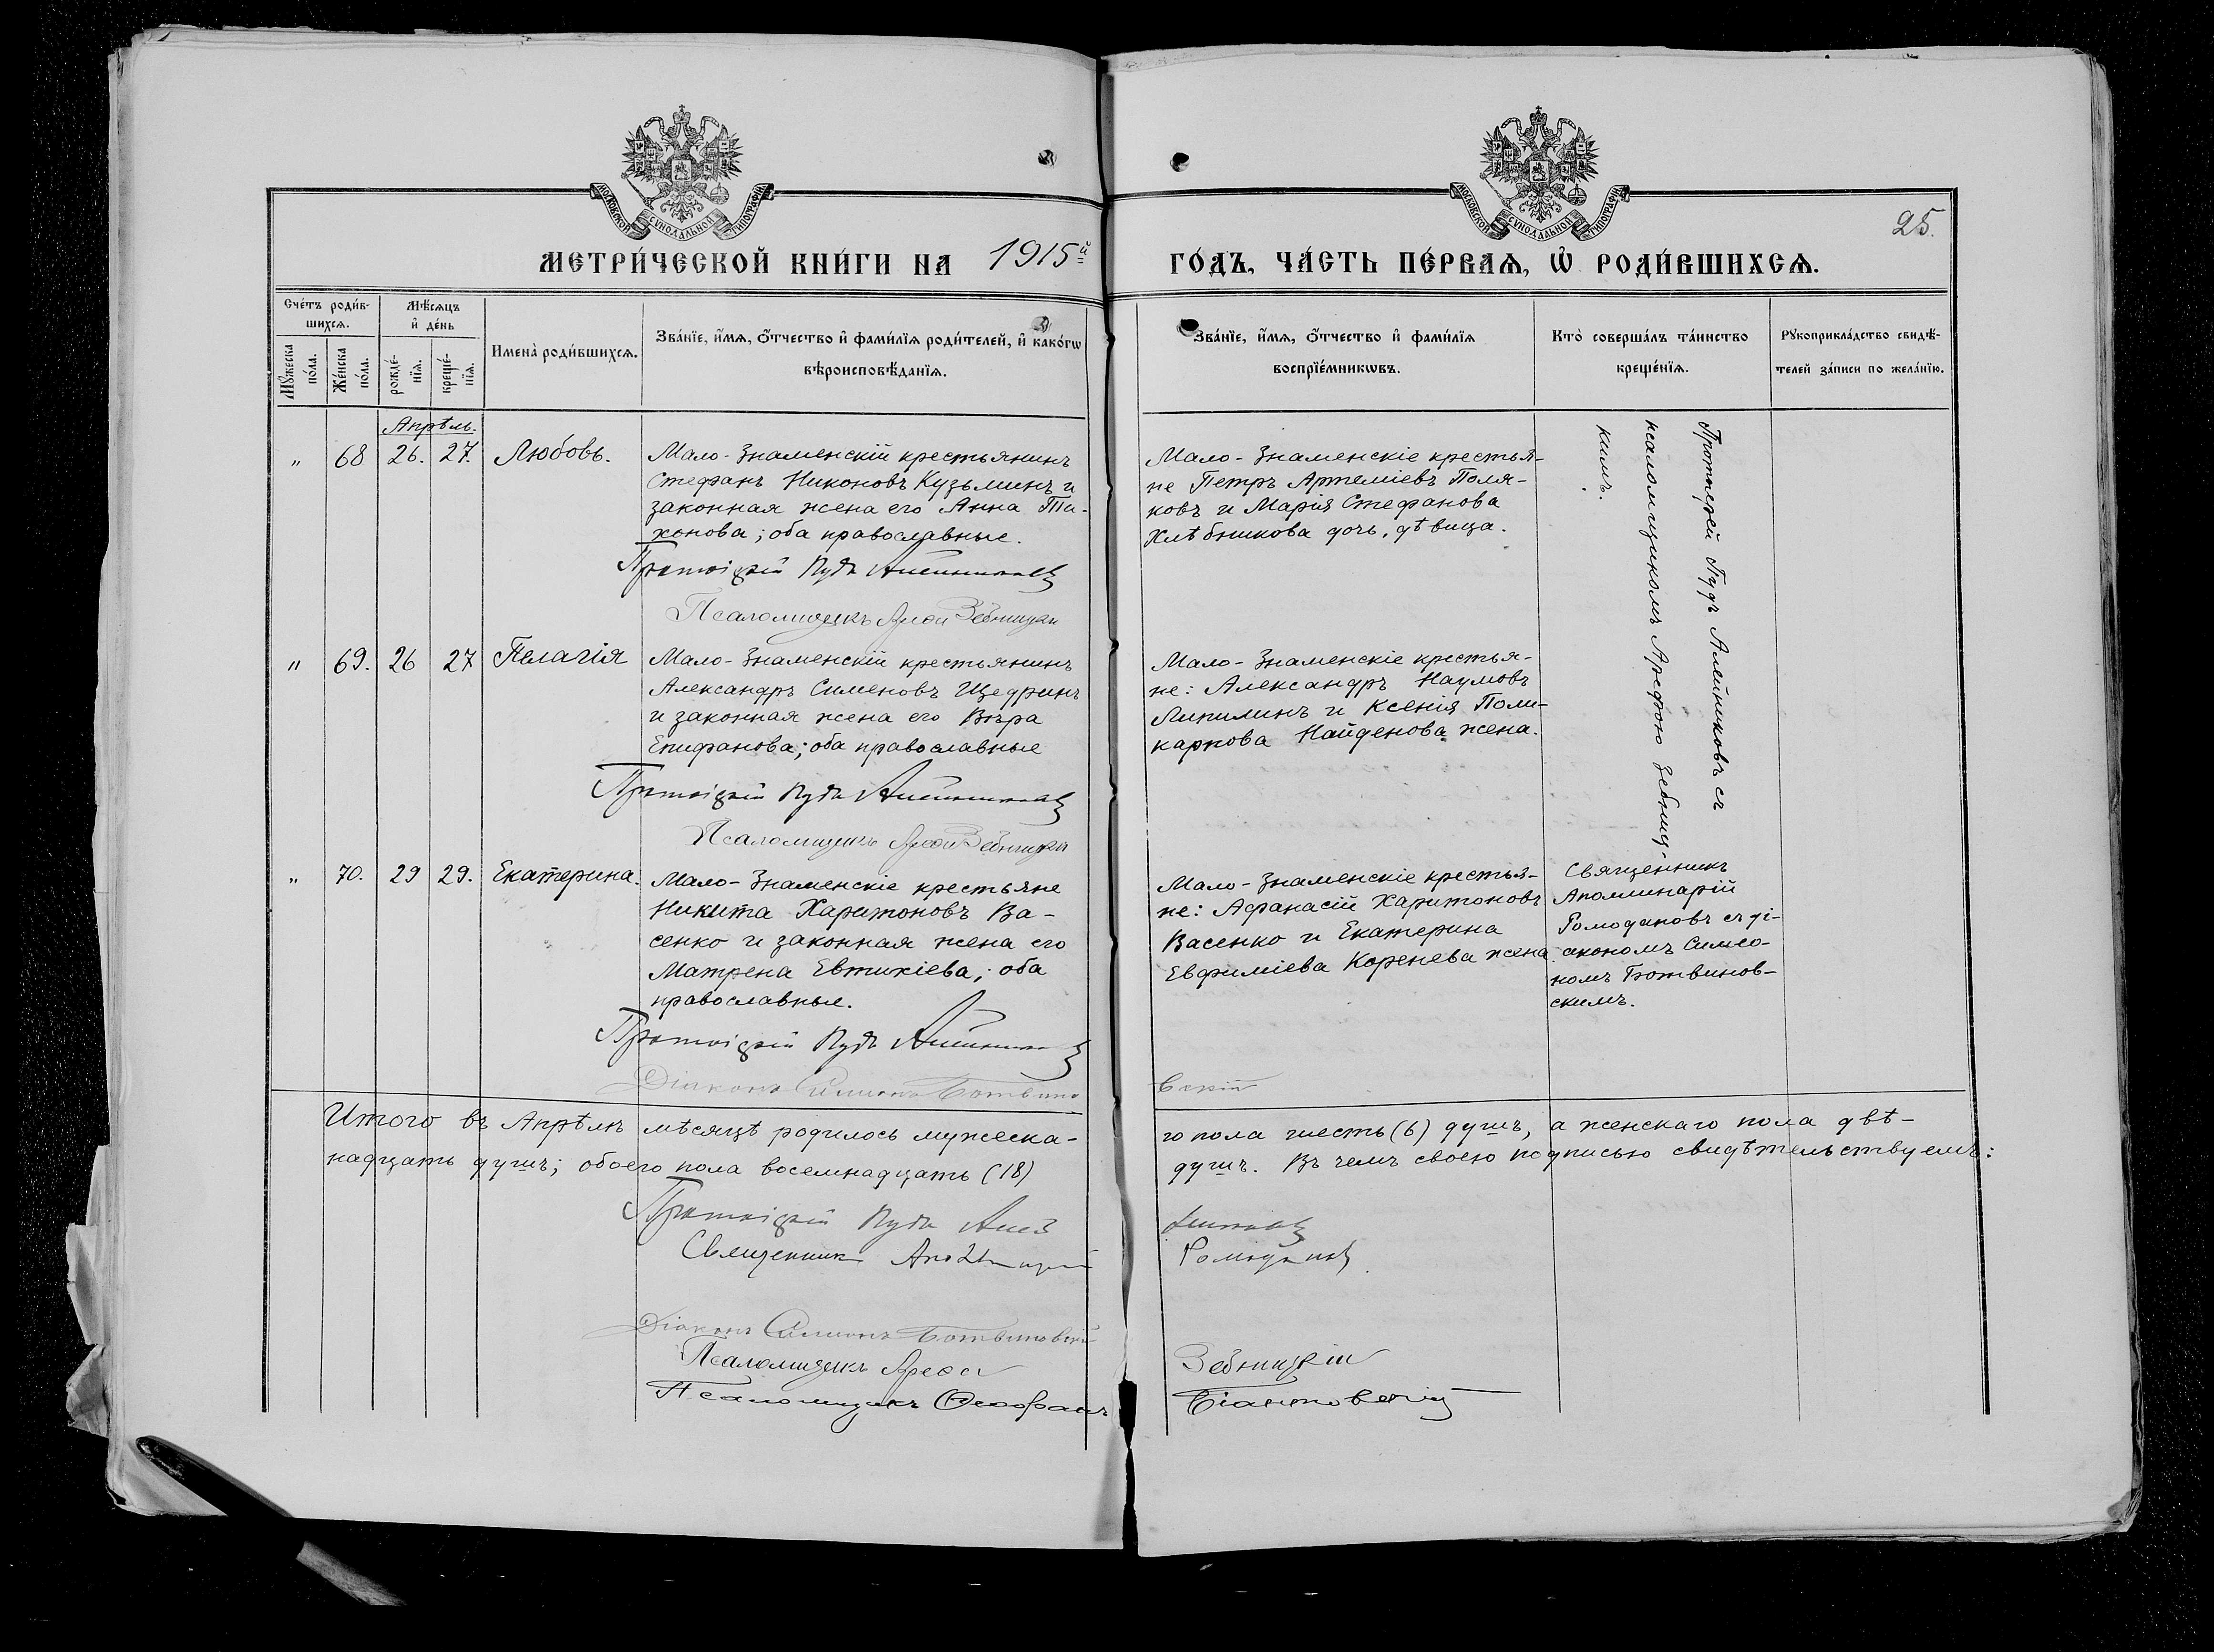 МОСКОВСКОЙ СѴНОДАЛЬНОЙ ТИПОГРАФІИ
МОСКОВСКОЙ СѴНОДАЛЬНОЙ ТИПОГРАФІИ
25.
МЕТРИ́ЧЕСКОЙ КНИ́ГИ НА 1915й
ГО́ДЪ, ЧА́СТЬ ПЕ́РВАЯ, Ѿ РОДИ́ВШИХСЯ.
Сче́тъ роди́в-
шихся.
Мꙋ́жеска по́ла.
Же́нска по́ла.
Мѣ́сяцъ
и҆ де́нь
рожде́-
нїѧ.
креще́-
нїѧ.
Имена̀ роди́вшихсѧ.
Зва́нїе, и҆́мѧ, ѻ҆́тчество и҆ фами́лїѧ роди́телей, и҆ како́гѡ
вѣроисповѣ́данїѧ.
Зва́нїе, и҆́мѧ, ѻ҆́тчество и҆ фами́лїѧ
воспрїе́мникѡвъ.
Кто̀ соверша́лъ та́инство
креще́нїѧ.
Рꙋкоприкла́дство свидѣ́-
телей за́писи по жела́нїю.
Апрѣль.
" 68 26. 27. Любовь.
Мало-Знаменскій крестьянинъ
Стефанъ Никоновъ Кузьминъ и
законная жена его Анна Ти-
хонова; оба православные.
Протоіерей Пудъ Алейниковъ
Псаломщикъ Арефа Зебницкій
Мало-Знаменскіе крестья-
не Петръ Артеміевъ Поля-
ковъ и Марія Стефанова
Хлѣбникова дочь, дѣвица.
Протоіерей Пудъ Алейниковъ съ
псаломщикомъ Арефою Зебниц-
кимъ.
" 69. 26 27 Пелагія
Мало-Знаменскій крестьянинъ
Александръ Сименовъ Щедринъ
и законная жена его Вѣра
Епифанова; оба православные
Протоіерей Пудъ Алейниковъ
Псаломщикъ Арефа Зебницкій
Мало-Знаменскіе крестья-
не: Александръ Наумовъ
Липилинъ и Ксенія Поли-
карпова Найденова жена.
" 70. 29 29. Екатерина.
Мало-Знаменскіе крестьяне
Никита Харитоновъ Ва-
сенко и законная жена его
Матрена Евтихіева; оба
православные.
Протоіерей Пудъ Алейниковъ
Діаконъ Симеонъ Ботвино
вскій
Мало-Знаменскіе крестья-
не: Афанасій Харитоновъ
Васенко и Екатерина
Евфиміева Коренева жена.
Священникъ
Аполлинарій
Ромодановъ съ ді-
акономъ Симео-
номъ Ботвинов-
скимъ.
Итого въ Апрѣлѣ мѣсяцѣ родилось мужеска-
го пола шесть (6) душъ, а женскаго пола двѣ-
надцать душъ; обоего пола восемнадцать (18)
душъ. Въ чемъ своею подписью свидѣтельствуемъ:
Протоіерей Пудъ Алей
никовъ
Священникъ Аполлинарій
Ромодановъ
Діаконъ Симеонъ Ботвиновскій
Псаломщикъ Арефа
Зебницкій
Псаломщикъ Ѳеофанъ